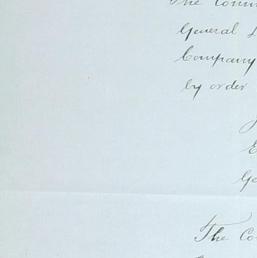 The Comm
General
Company
by order
The Co